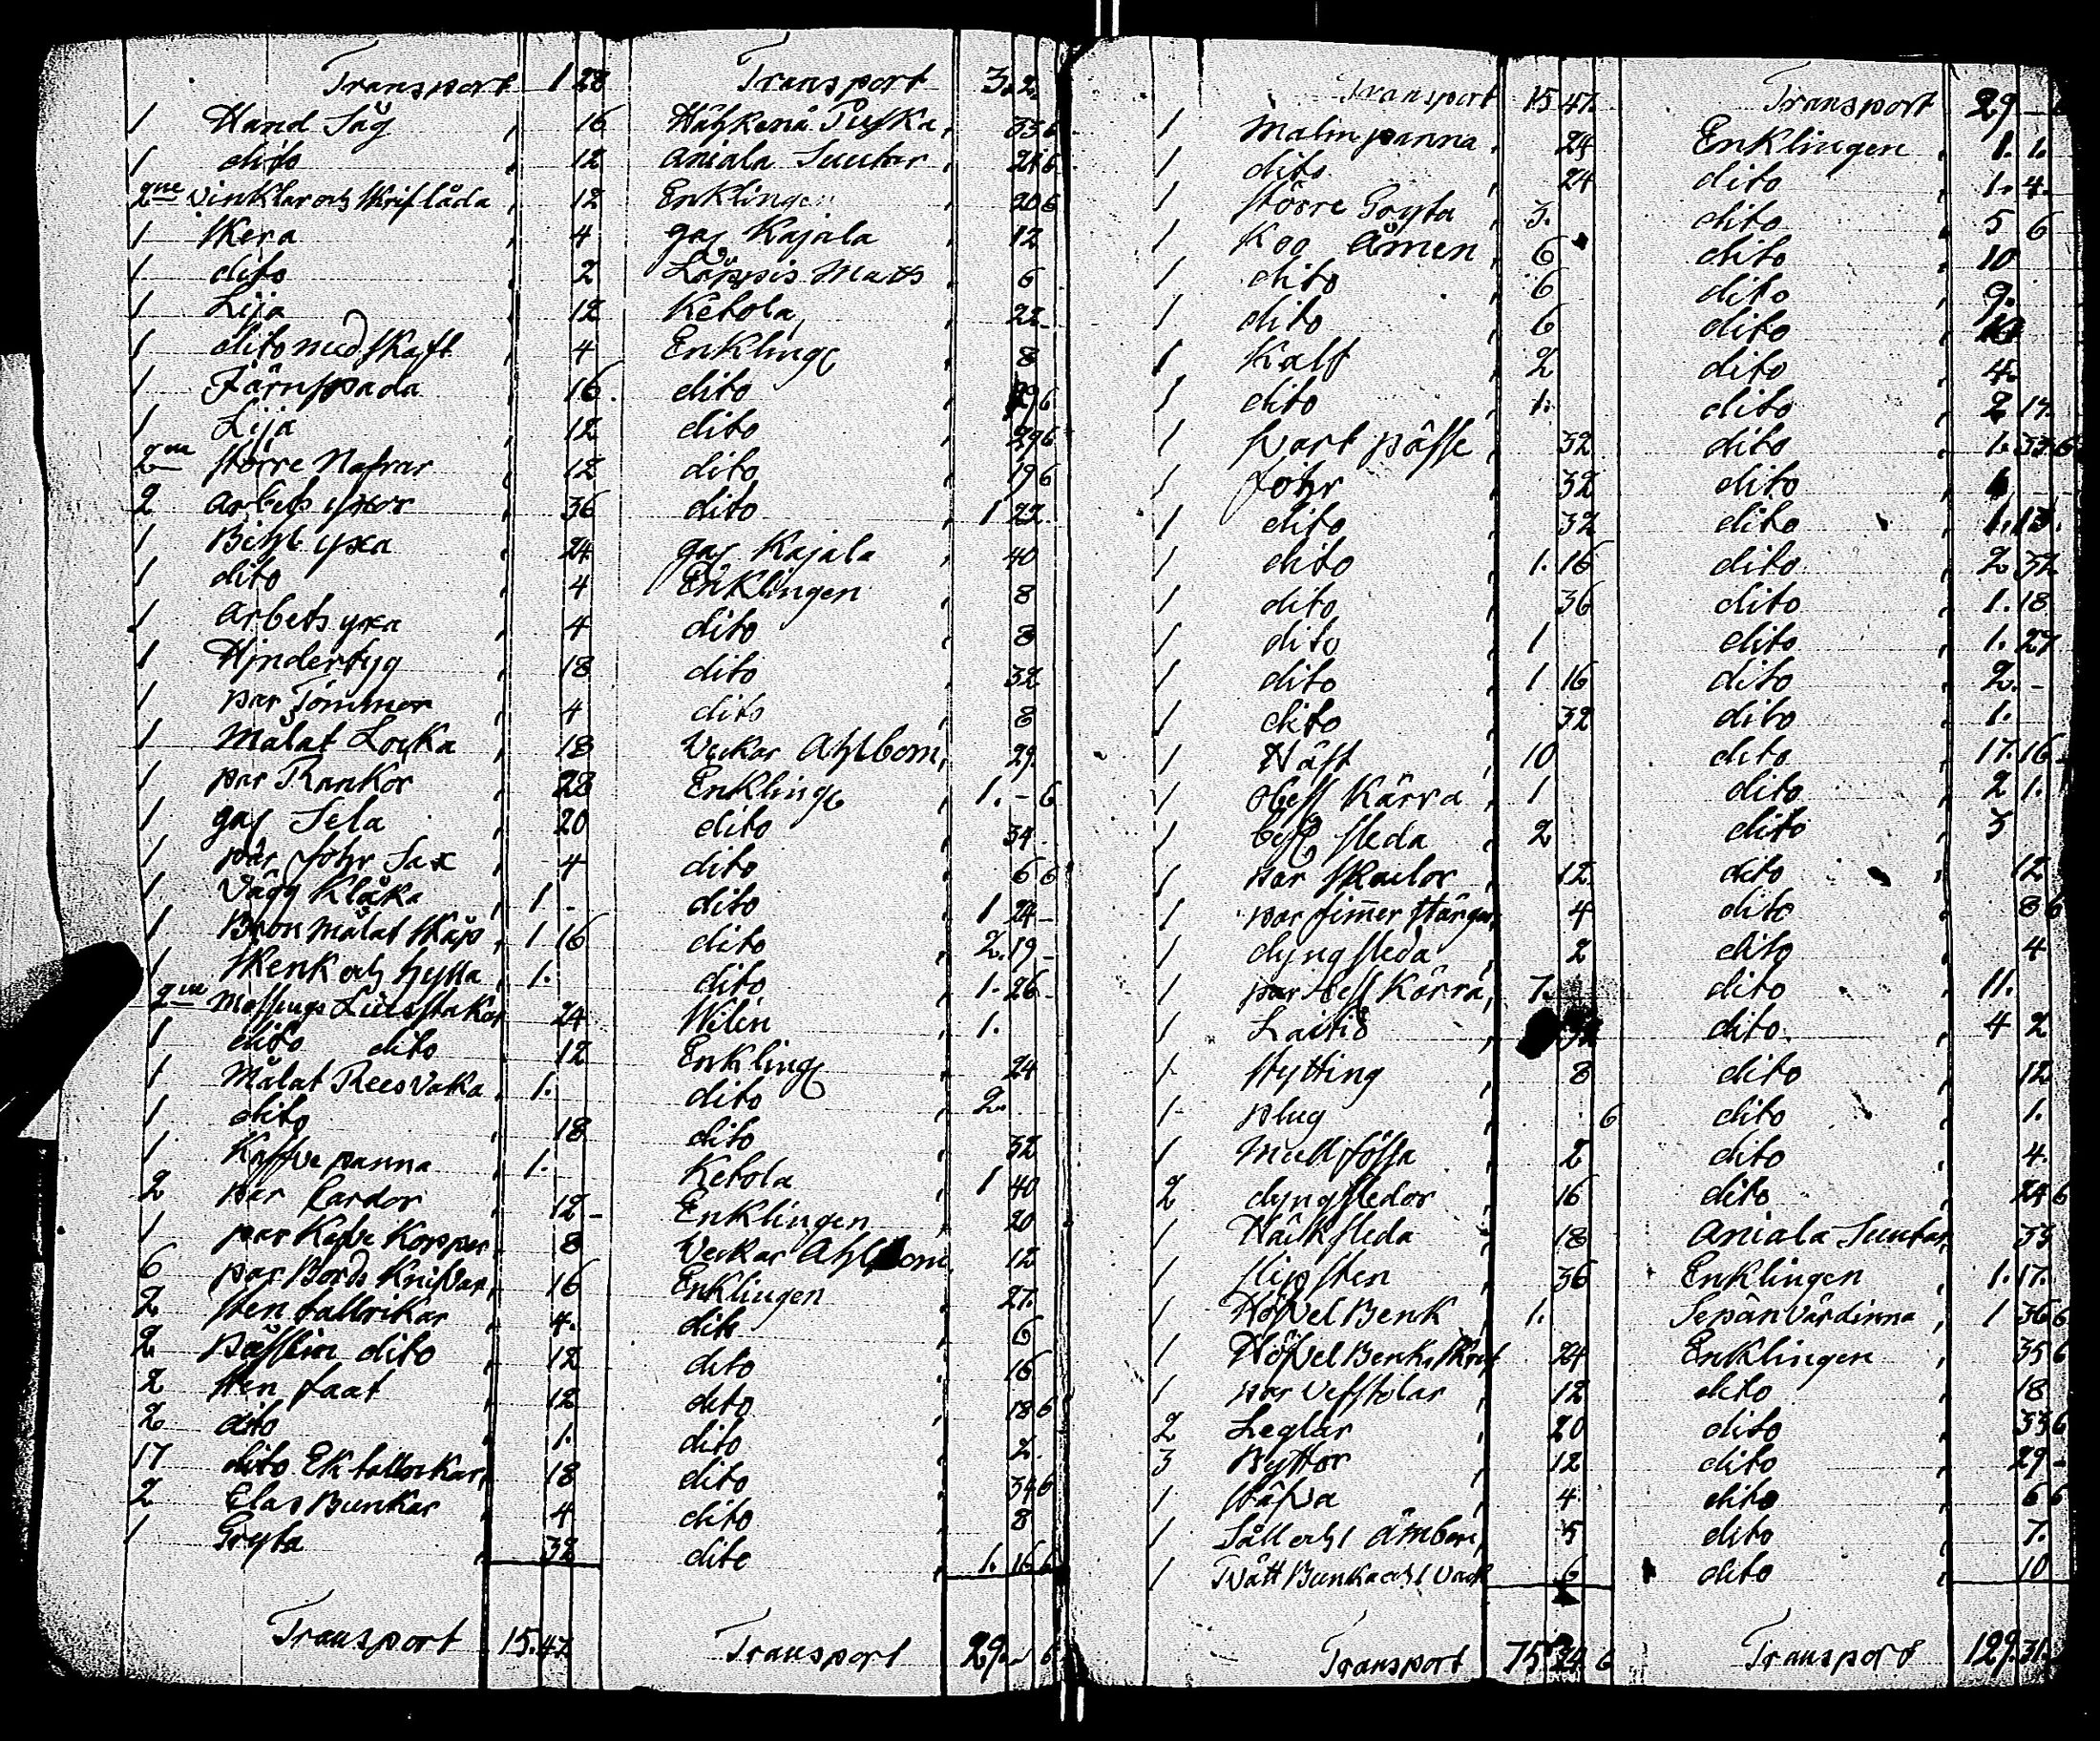 Transport 1 28 Transport 3. 2.
1 Hand Såg 16 33 6
1 dito 12 Aniala Suutar 21 6
2ne Vinklar och Skriflåda 12 Enklingen 20 6
1 Skera 4 gas Kajala 12
1 dito 2 Läppis Matts 6
1 Lija 12 Ketola 22
1 dito med skaft 4 Enkling 8
1 Järnspada 16 dito 6
1 Lija 12 dito 29 6
2ne större Nafrar 12 dito 19 6
2 arbets yxor 36 dito 1 22
1 Bihl yxa 24 gas Kajala 40
1 dito 4 Enklingen 8
1 arbets yxa 4 dito 8
1 18 dito 32
1 par Tömmor 4 dito 8
1 Målat Locka 18 Ahlbom 29
1 par Rankor 28 Enkling 1. - 6
1 gas Sela 20 dito 34
1 par fohr Sax 4 dito 6 6
1 Vägg Klåka 1 - dito 1 24 -
1 Bron målat Skåp 1 16 dito 2. 19 -
1 Skenk och hylla 1. dito 1. 26 -
2ne Messings Liusstakar 24 Wilén 1.
1 dito dito 12 Enkling 24
1 Målat Rees Vaka 1. dito 2.
1 dito 18 dito 32
1 Kaffve panna 1. Ketola 1 40
2 par Cardor 12 - Enklingen 20
1 par Kafve Koppar 8 12
6 par Bords Knifvar 16 Enklingen 27.
2 sten tallrikar 4. dito 6
2 dito 12 dito 16
2 sten faat 12 dito 18 6
2 dito 1. dito 2.
17 dito 18 dito 34 6
2 Glas Bunkar 4 dito 8
1 Gryta 32 dito 1. 16 6
Transport 15. 47. Transport 29. 6
Transport 15 47. Transport 29
1 Malmpanna 24 Enklingen 1. 1.
1 dito 24 dito 1. 4.
1 större Gryta 3. dito 5 6
1 Koo Ämen 6 dito 10
1 dito 6 dito 9.
1 dito 6 dito
1 Kalf 2 dito 4.
1 dito 1. dito 2 17.
1 svart pässe 32 dito 1. 33 6
1 fohr 32 dito
1 dito 32 dito 1. 13.
1 dito 1. 16 dito 2 32
1 dito 36 dito 1. 18
1 dito 1 dito 1. 27
1 dito 1 16 dito 2. -
1 dito 32 dito 1.
1 Häst 10 dito 17. 16
1 Kärra 1 dito 2 1.
1 sleda 2 dito 3
1 par Skaclor 12 dito 12
1 par timer stänger 4 dito 8 6
1 dyngsleda 2 dito 4
1 par Kärra 7. dito 11.
1 dito 4 2
1 Stytting 8 dito 12
1 plug 6 dito 1.
1 Mull fössa 2 dito 4.
2 dyngsledor 16 dito 24 6
1 Häcksleda 18 Aniala Suutar 33
1 slipsten 36 Enklingen 1. 17.
1 Höfvel Benk 1. Sepän Värdinna 1 36 6
1 Höfvel Benks Skruf 24 Enklingen 35 6
1 par Vefstolar 12 dito 18
2 Leglar 20 dito 33 6
3 Byttor 12 dito 29 -
1 Stäfva 4 dito 6 6
1 Såll och 1 Ämbare 5 dito 7.
1 Tvätt Bunka och 1 6 dito 10
Transport 75 24 6 Transport 129. 31.